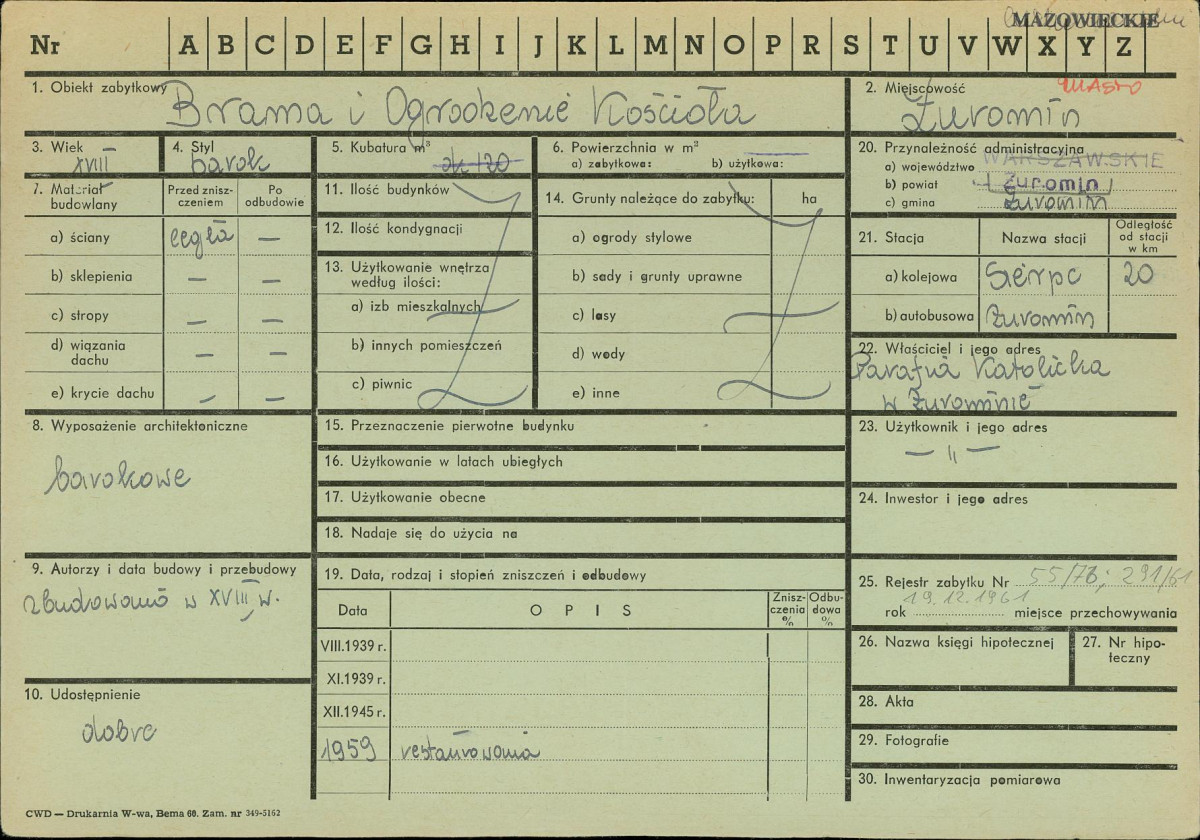 MAZOWIECKIE
Nr A B C D E F G H I J K L M N O P R S T U V W X Y Z
1. Obiekt zabytkowy Brama i Ogrodzenie Kościoła
2. Miejscowość MIASTO
Żuromin
3. Wiek XVIII
4. Styl barok
5. Kubatura m³ ok 120
6. Powierzchnia w m²
a) zabytkowa: b) użytkowa:
20. Przynależność administracyjna
a) województwo WARSZAWSKIE
b) powiat Żuromin
c) gmina Żuromin
7. Materiał budowlany
Przed znisz-
czeniem
Po
odbudowie
a) ściany cegła —
b) sklepienia — —
c) stropy — —
d) wiązania
dachu — —
e) krycie dachu — —
11. Ilość budynków
12. Ilość kondygnacji
13. Użytkowanie wnętrza
według ilości:
a) izb mieszkalnych
b) innych pomieszczeń
c) piwnic
14. Grunty należące do zabytku: ha
a) ogrody stylowe
b) sady i grunty uprawne
c) lasy
d) wody
e) inne
21. Stacja Nazwa stacji
Odległość
od stacji
w km
a) kolejowa Sierpc 20
b) autobusowa Żuromin
22. Właściciel i jego adres
Parafia Katolicka
w Żurominie
8. Wyposażenie architektoniczne
barokowe
15. Przeznaczenie pierwotne budynku
16. Użytkowanie w latach ubiegłych
17. Użytkowanie obecne
18. Nadaje się do użycia na
23. Użytkownik i jego adres
— „ —
24. Inwestor i jego adres
9. Autorzy i data budowy i przebudowy
zbudowano w XVIII w.
10. Udostępnienie
dobre
19. Data, rodzaj i stopień zniszczeń i odbudowy
Data OPIS
Znisz-
czenia
%
Odbu-
dowa
%
VIII.1939 r.
XI.1939 r.
XII.1945 r.
1959 restaurowania
25. Rejestr zabytku Nr 55/76; 291/61
19.12.1961
rok miejsce przechowywania
26. Nazwa księgi hipotecznej
27. Nr hipo-
teczny
28. Akta
29. Fotografie
30. Inwentaryzacja pomiarowa
CWD — Drukarnia W-wa, Bema 60. Zam. nr 349-5162